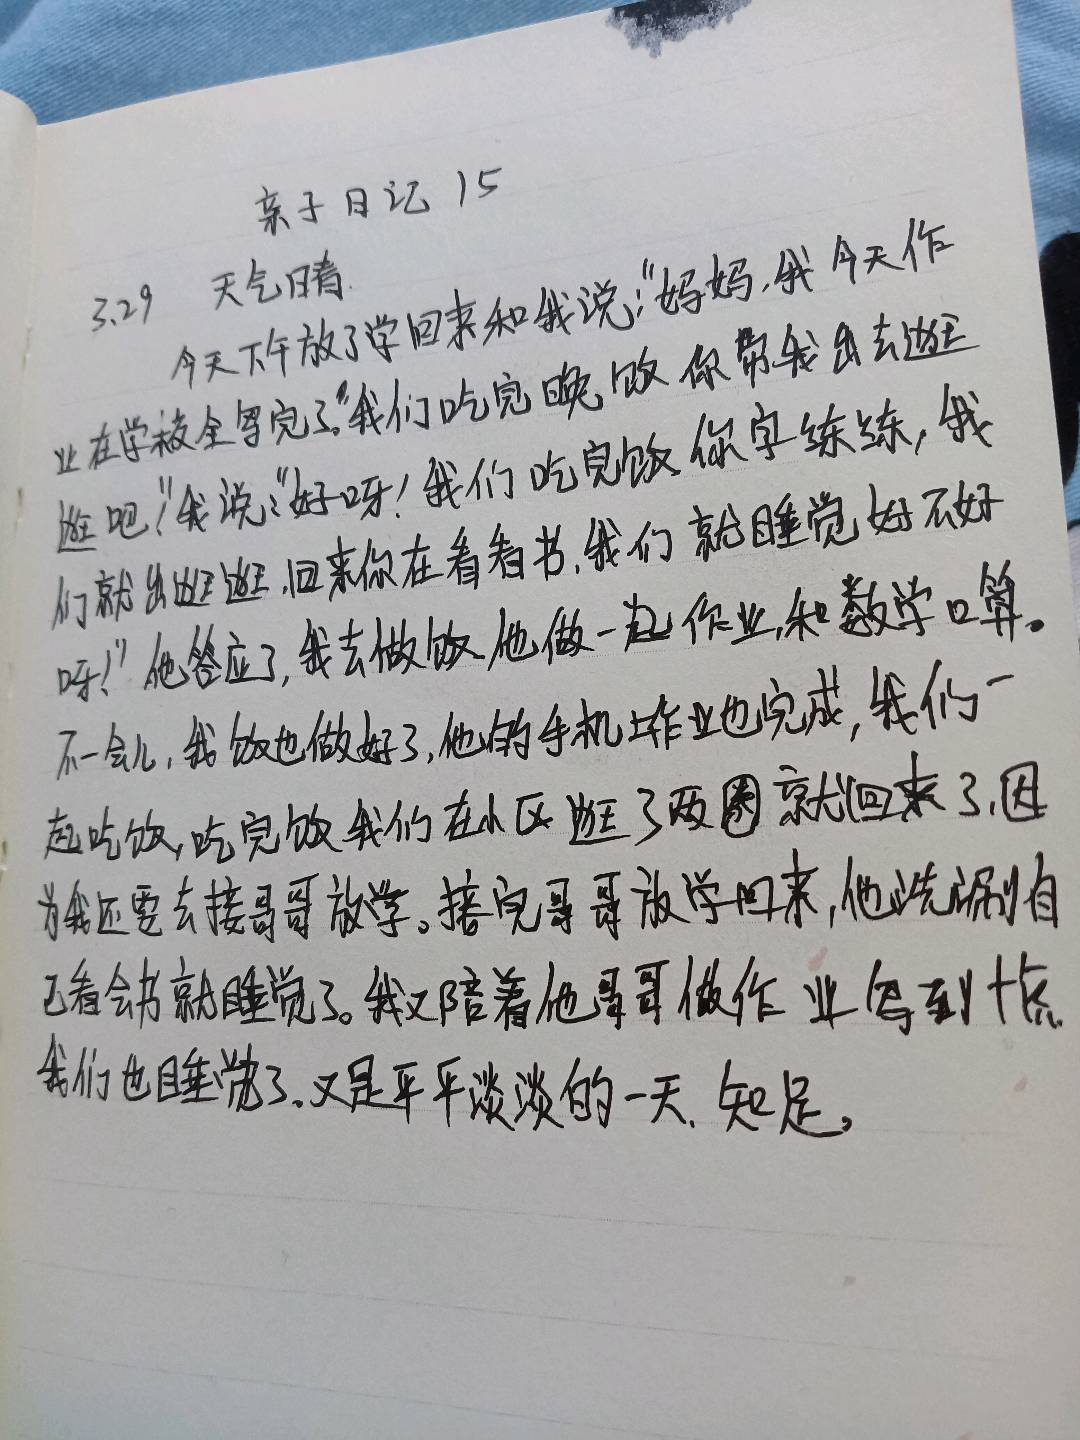 亲子日记 15
3.29 天气晴.
今天下午放了学回来和我说:"妈妈,我今天作
业在学校全写完了。"我们吃完晚饭你带我出去逛
逛吧!"我说:"好呀!我们吃完饭你字练练,我
们就出逛逛,回来你在看看书,我们就睡觉好不好
呀!"他答应了,我去做饭,他做一起作业,和数学口算。
不一会儿,我饭也做好了,他的手机上作业也完成,我们一
起吃饭,吃完饭我们在小区逛了两圈就回来了,因
为我还要去接哥哥放学。接完哥哥放学回来,他洗涮自
己看会书就睡觉了。我又陪着他哥哥做作业写到十点
我们也睡觉了。又是平平淡淡的一天,知足。